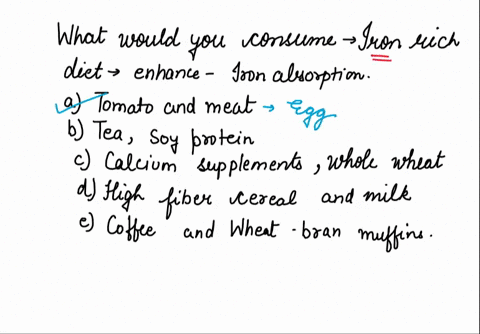 What would you consume → Iron rich
diet → enhance - Iron absorption.
a) Tomato and meat → Egg
b) Tea, Soy protein
c) Calcium supplements, whole wheat
d) High fiber cereal and milk
e) Coffee and Wheat-bran muffins.